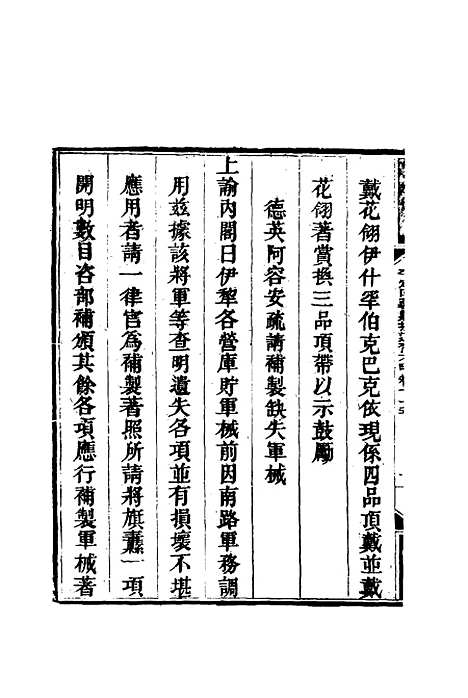 戴花翎伊什罕伯克巴克依現係四品頂戴並戴
花翎著賞換三品頂帶以示鼓勵
德英阿容安疏請補製缺失軍械
上諭內閣曰伊犂各營庫貯軍械前因南路軍務調
用兹據該將軍等查明遺失各項並有損壞不堪
應用者請一律官爲補製著照所請將旗纛一項
開明數目咨部補頒其餘各項應行補製軍械著